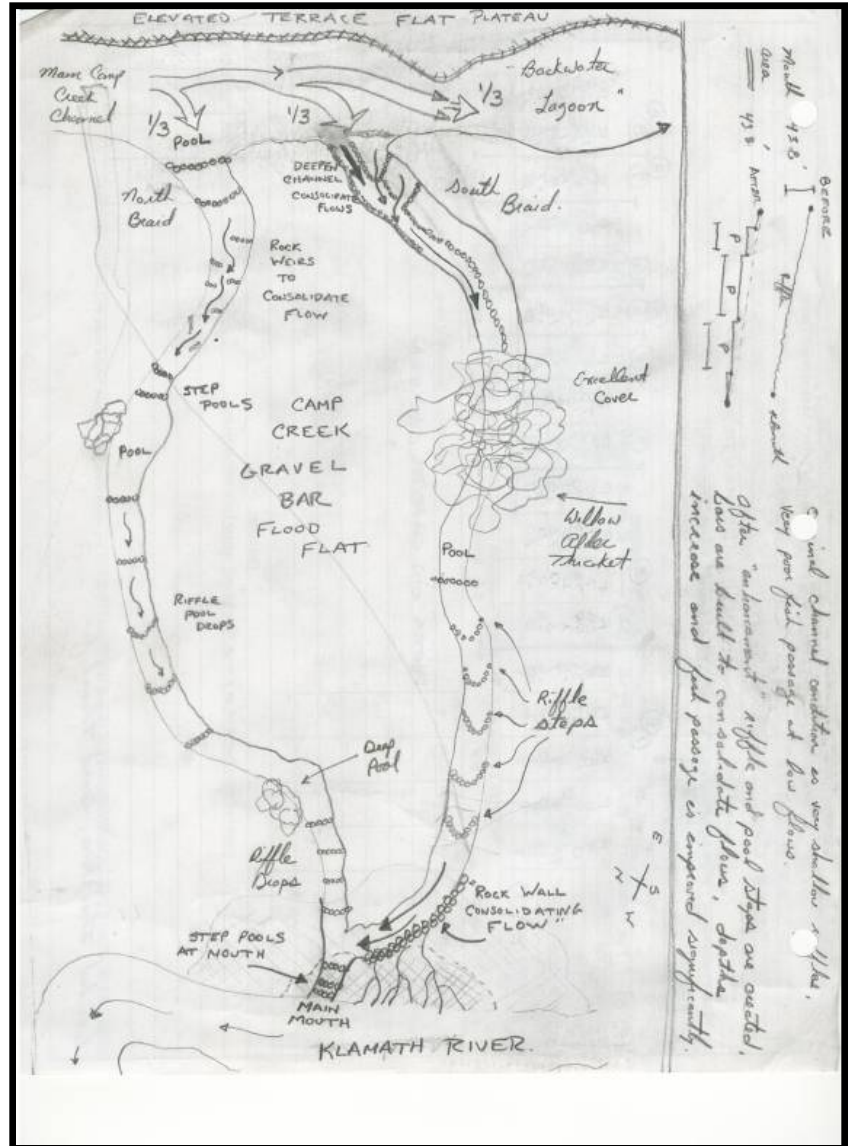 ELEVATED TERRACE FLAT PLATEAU
Main Camp
Creek
Channel
1/3
1/3
1/3
"Backwater
Lagoon"
POOL
North
Braid
DEEPEN
CHANNEL
CONSOLIDATE
FLOWS
South
Braid.
ROCK
WEIRS
TO
CONSOLIDATE
FLOW
STEP
POOLS
CAMP
CREEK
GRAVEL
BAR
FLOOD
FLAT
Excellent
Cover
POOL
Willow
Alder
Thicket
POOL
RIFFLE
POOL
DROPS
Riffle
steps
Deep
Pool
Riffle
Drops
"ROCK WALL
CONSOLIDATING
FLOW"
STEP POOLS
AT MOUTH
MAIN
MOUTH
KLAMATH RIVER.
E
N S
W
Mouth 438'
area 438'
BEFORE
riffle
AFTER
P
P
P
channel condition is very shallow riffles,
very poor fish passage at low flows.
After "enhancement" riffle and pool steps are created,
bars are built to consolidate flows, depths
increase and fish passage is improved significantly.